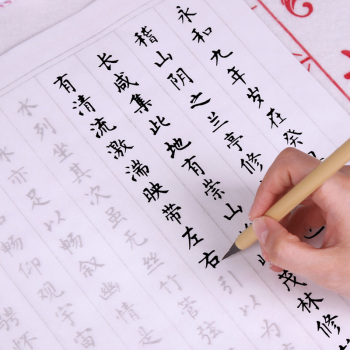 永和九年岁在癸
稽山阴之兰亭修
长咸集此地有崇山茂林修
有清流激湍映带左右引以为
水列坐其次虽无丝竹管弦
亦足以畅叙幽情是
畅仰观宇宙
骋